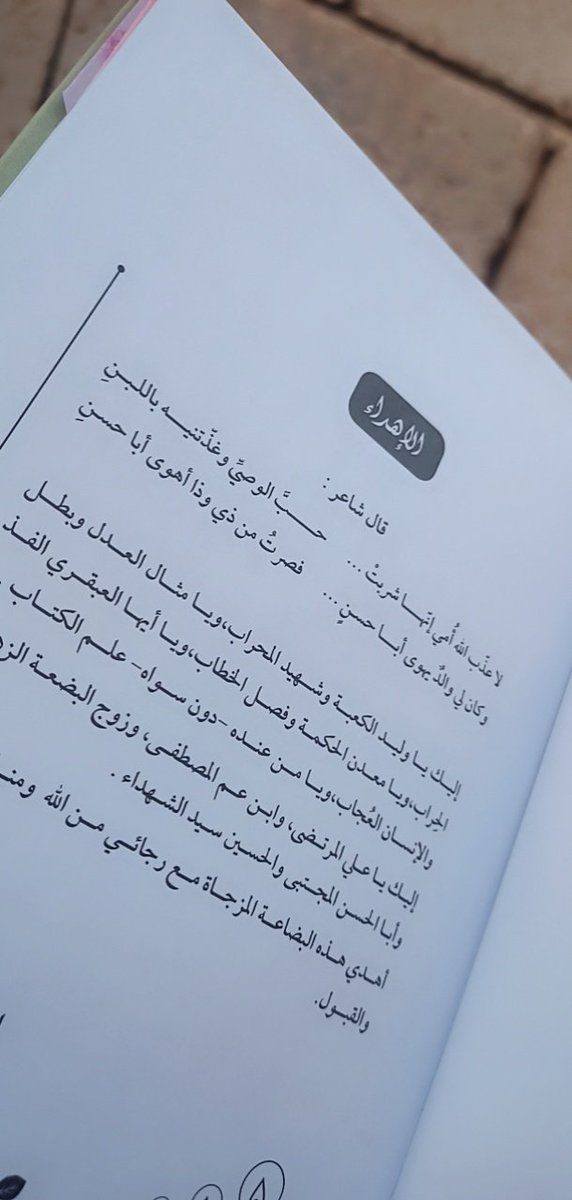 الإهداء
قال شاعر :
لا عذّب الله أُمي إنّها شربتْ ... حبَّ الوصيِّ وغذّتنيه باللبنِ
وكان لي والدٌ يهوى أبا حسنٍ ... فصرتُ من ذي وذا أهوى أبا حسنِ
إليك يا وليد الكعبة وشهيد المحراب، ويا مثال العدل وبطل
الحِراب، ويا معدن الحكمة وفصل الخطاب، ويا أيها العبقري الفذ
والإنسان العُجاب، ويا من عنده -دون سواه- علم الكتاب
إليك يا علي المرتضى، وابن عم المصطفى، وزوج البضعة
وأبا الحسن المجتبى والحسين سيد الشهداء .
أهدي هذه البضاعة المزجاة مع رجائي من الله
والقبول.